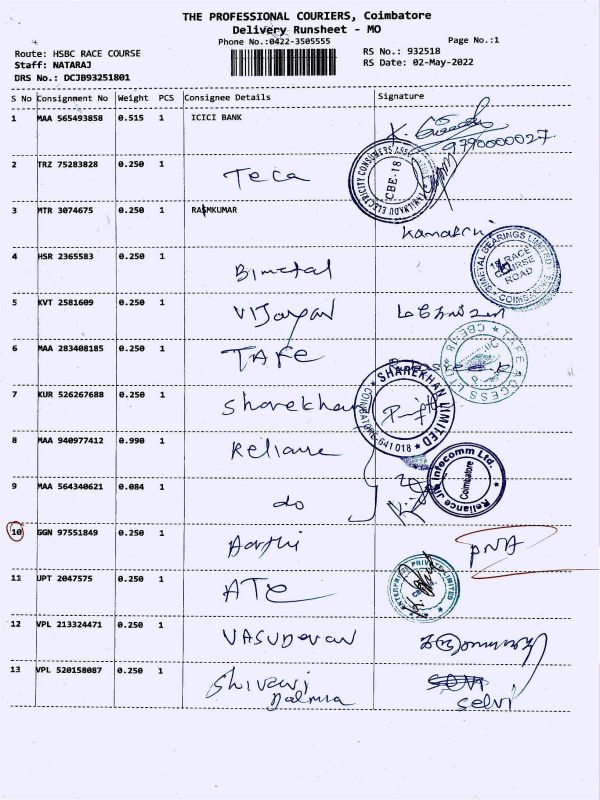 THE PROFESSIONAL COURIERS, Coimbatore
Delivery Runsheet - MO
Phone No.:0422-3505555 Page No.:1
Route: HSBC RACE COURSE RS No.: 932518
Staff: NATARAJ RS Date: 02-May-2022
DRS No.: DCJB93251801
S No Consignment No Weight PCS Consignee Details Signature
1 MAA 565493858 0.515 1 ICICI BANK
9790000027
2 TRZ 75283828 0.250 1 Teca
ELECTRICITY CONSUMERS TAMILNADU CBE-18
3 MTR 3074675 0.250 1 RAJMKUMAR
Kamatchi
4 HSR 2365583 0.250 1 Bimetal
BIMETAL BEARINGS LIMITED RACE COURSE ROAD
5 KVT 2581609 0.250 1 Vijayan
6 MAA 283408185 0.250 1 TAFE
TAFE ACCESS LTD CBE-18
7 KUR 526267688 0.250 1 Sharekhan
SHAREKHAN LIMITED COIMBATORE-641 018
8 MAA 940977412 0.990 1 Reliance
9 MAA 564340621 0.084 1 do
Reliance Jio Infocomm Ltd. Coimbatore
10 GGN 97551849 0.250 1 Aarthi PNA
11 UPT 2047575 0.250 1 ATE
ENTERPRISES PRIVATE LIMITED
12 VPL 213324471 0.250 1 VASUDEVAN
13 VPL 520158087 0.250 1 Shivani
Dalmia Selvi